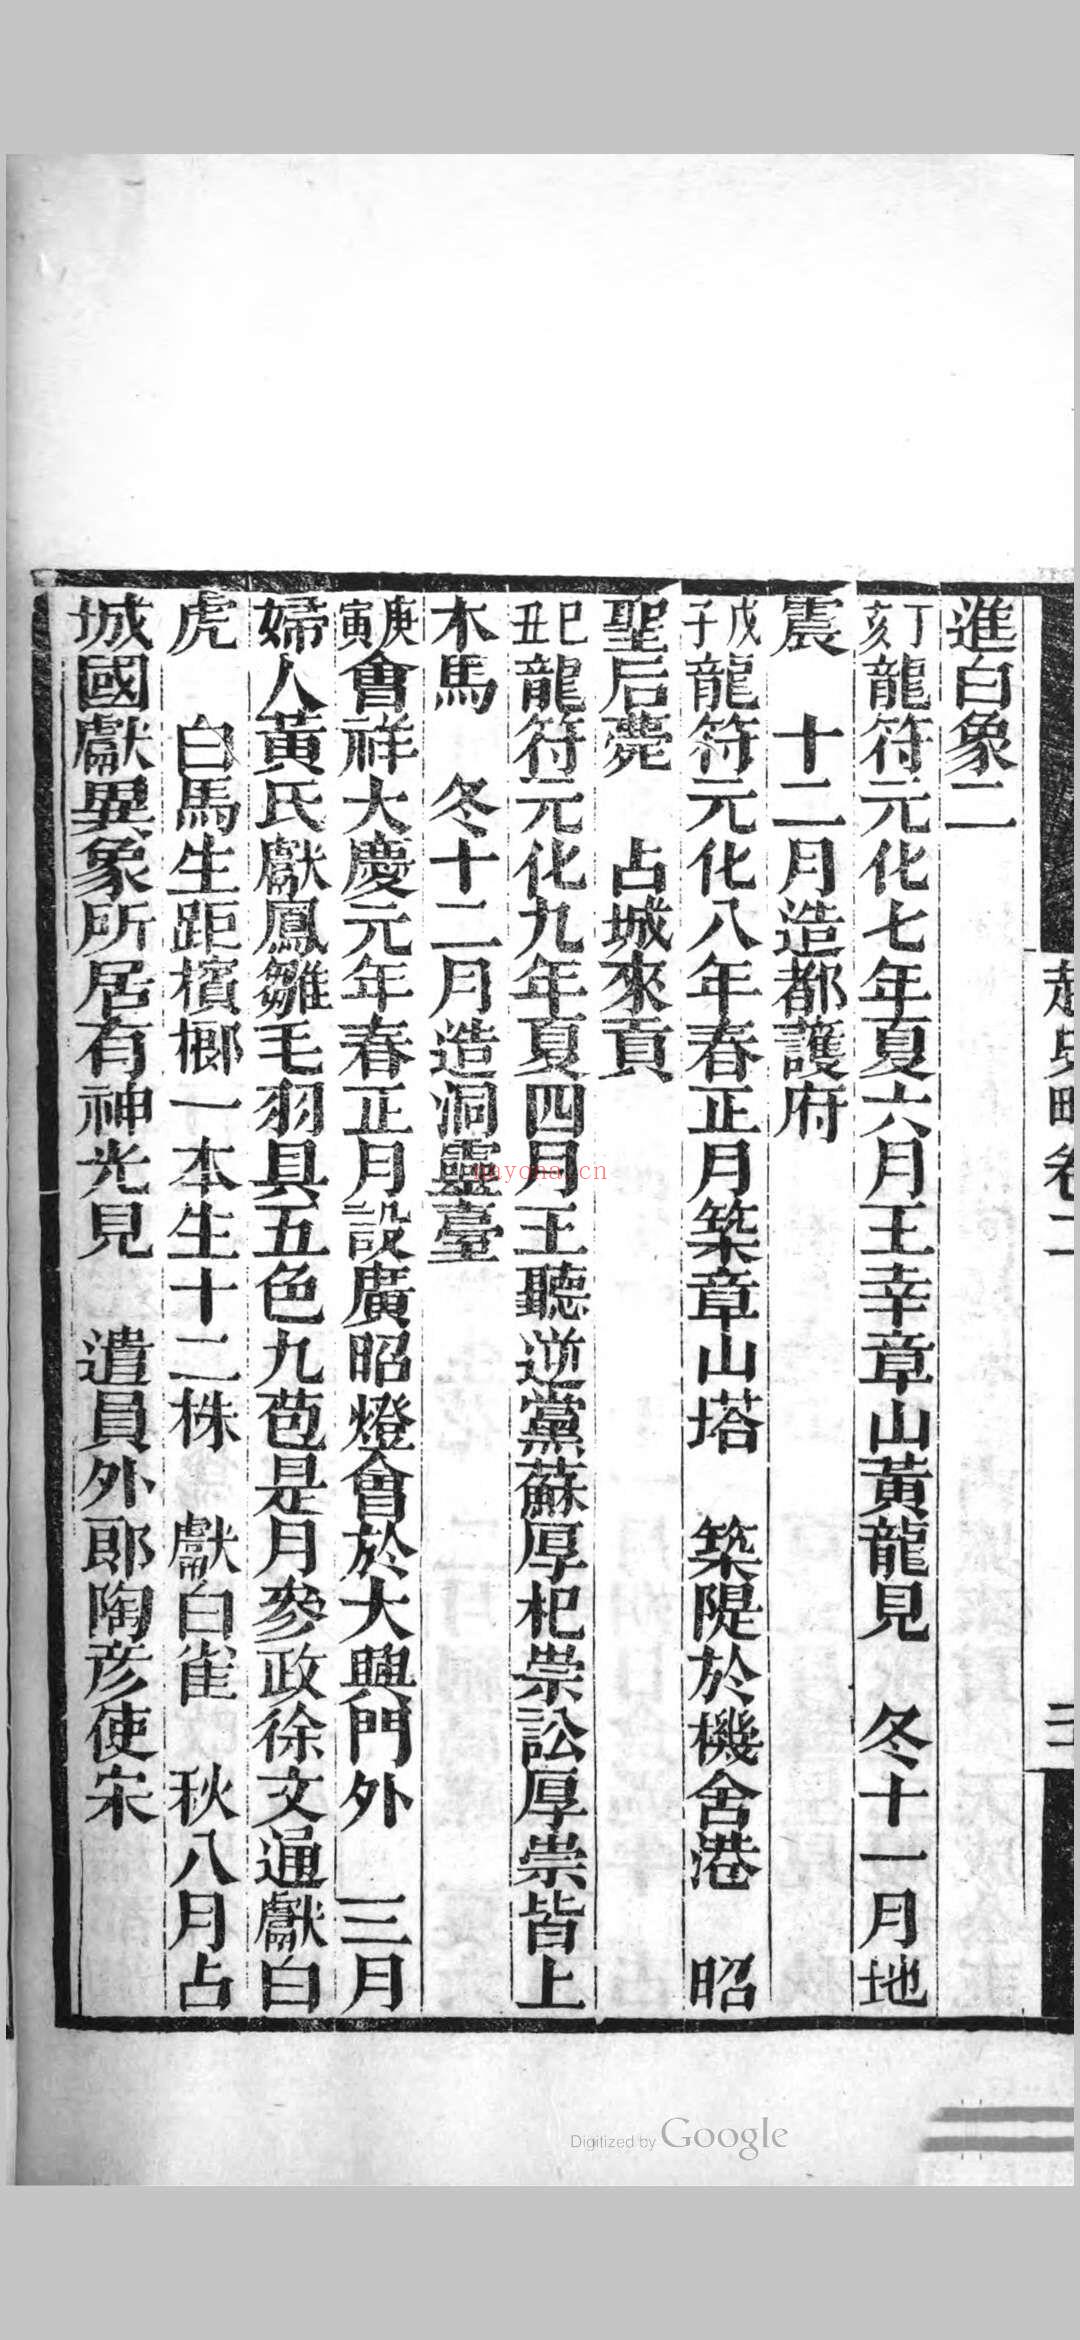 越史略卷二
三
進白象二
丁亥龍符元化七年夏六月王幸章山黃龍見　冬十一月地
震　十二月造都護府
戊子龍符元化八年春正月築章山塔　築隄於機舍港　昭
聖后薨　占城來貢
己丑龍符元化九年夏四月王聽逆黨蘇厚杷崇訟厚崇皆上
木馬　冬十二月造洞靈臺
庚寅會祥大慶元年春正月設廣昭燈會於大興門外　三月
婦人黃氏獻鳳雛毛羽具五色九苞是月參政徐文通獻白
虎　白馬生距檳榔一本生十二株　獻白雀　秋八月占
城國獻異象所居有神光見　遣員外郎陶彦使宋
nayona.cn
Digitized by Google